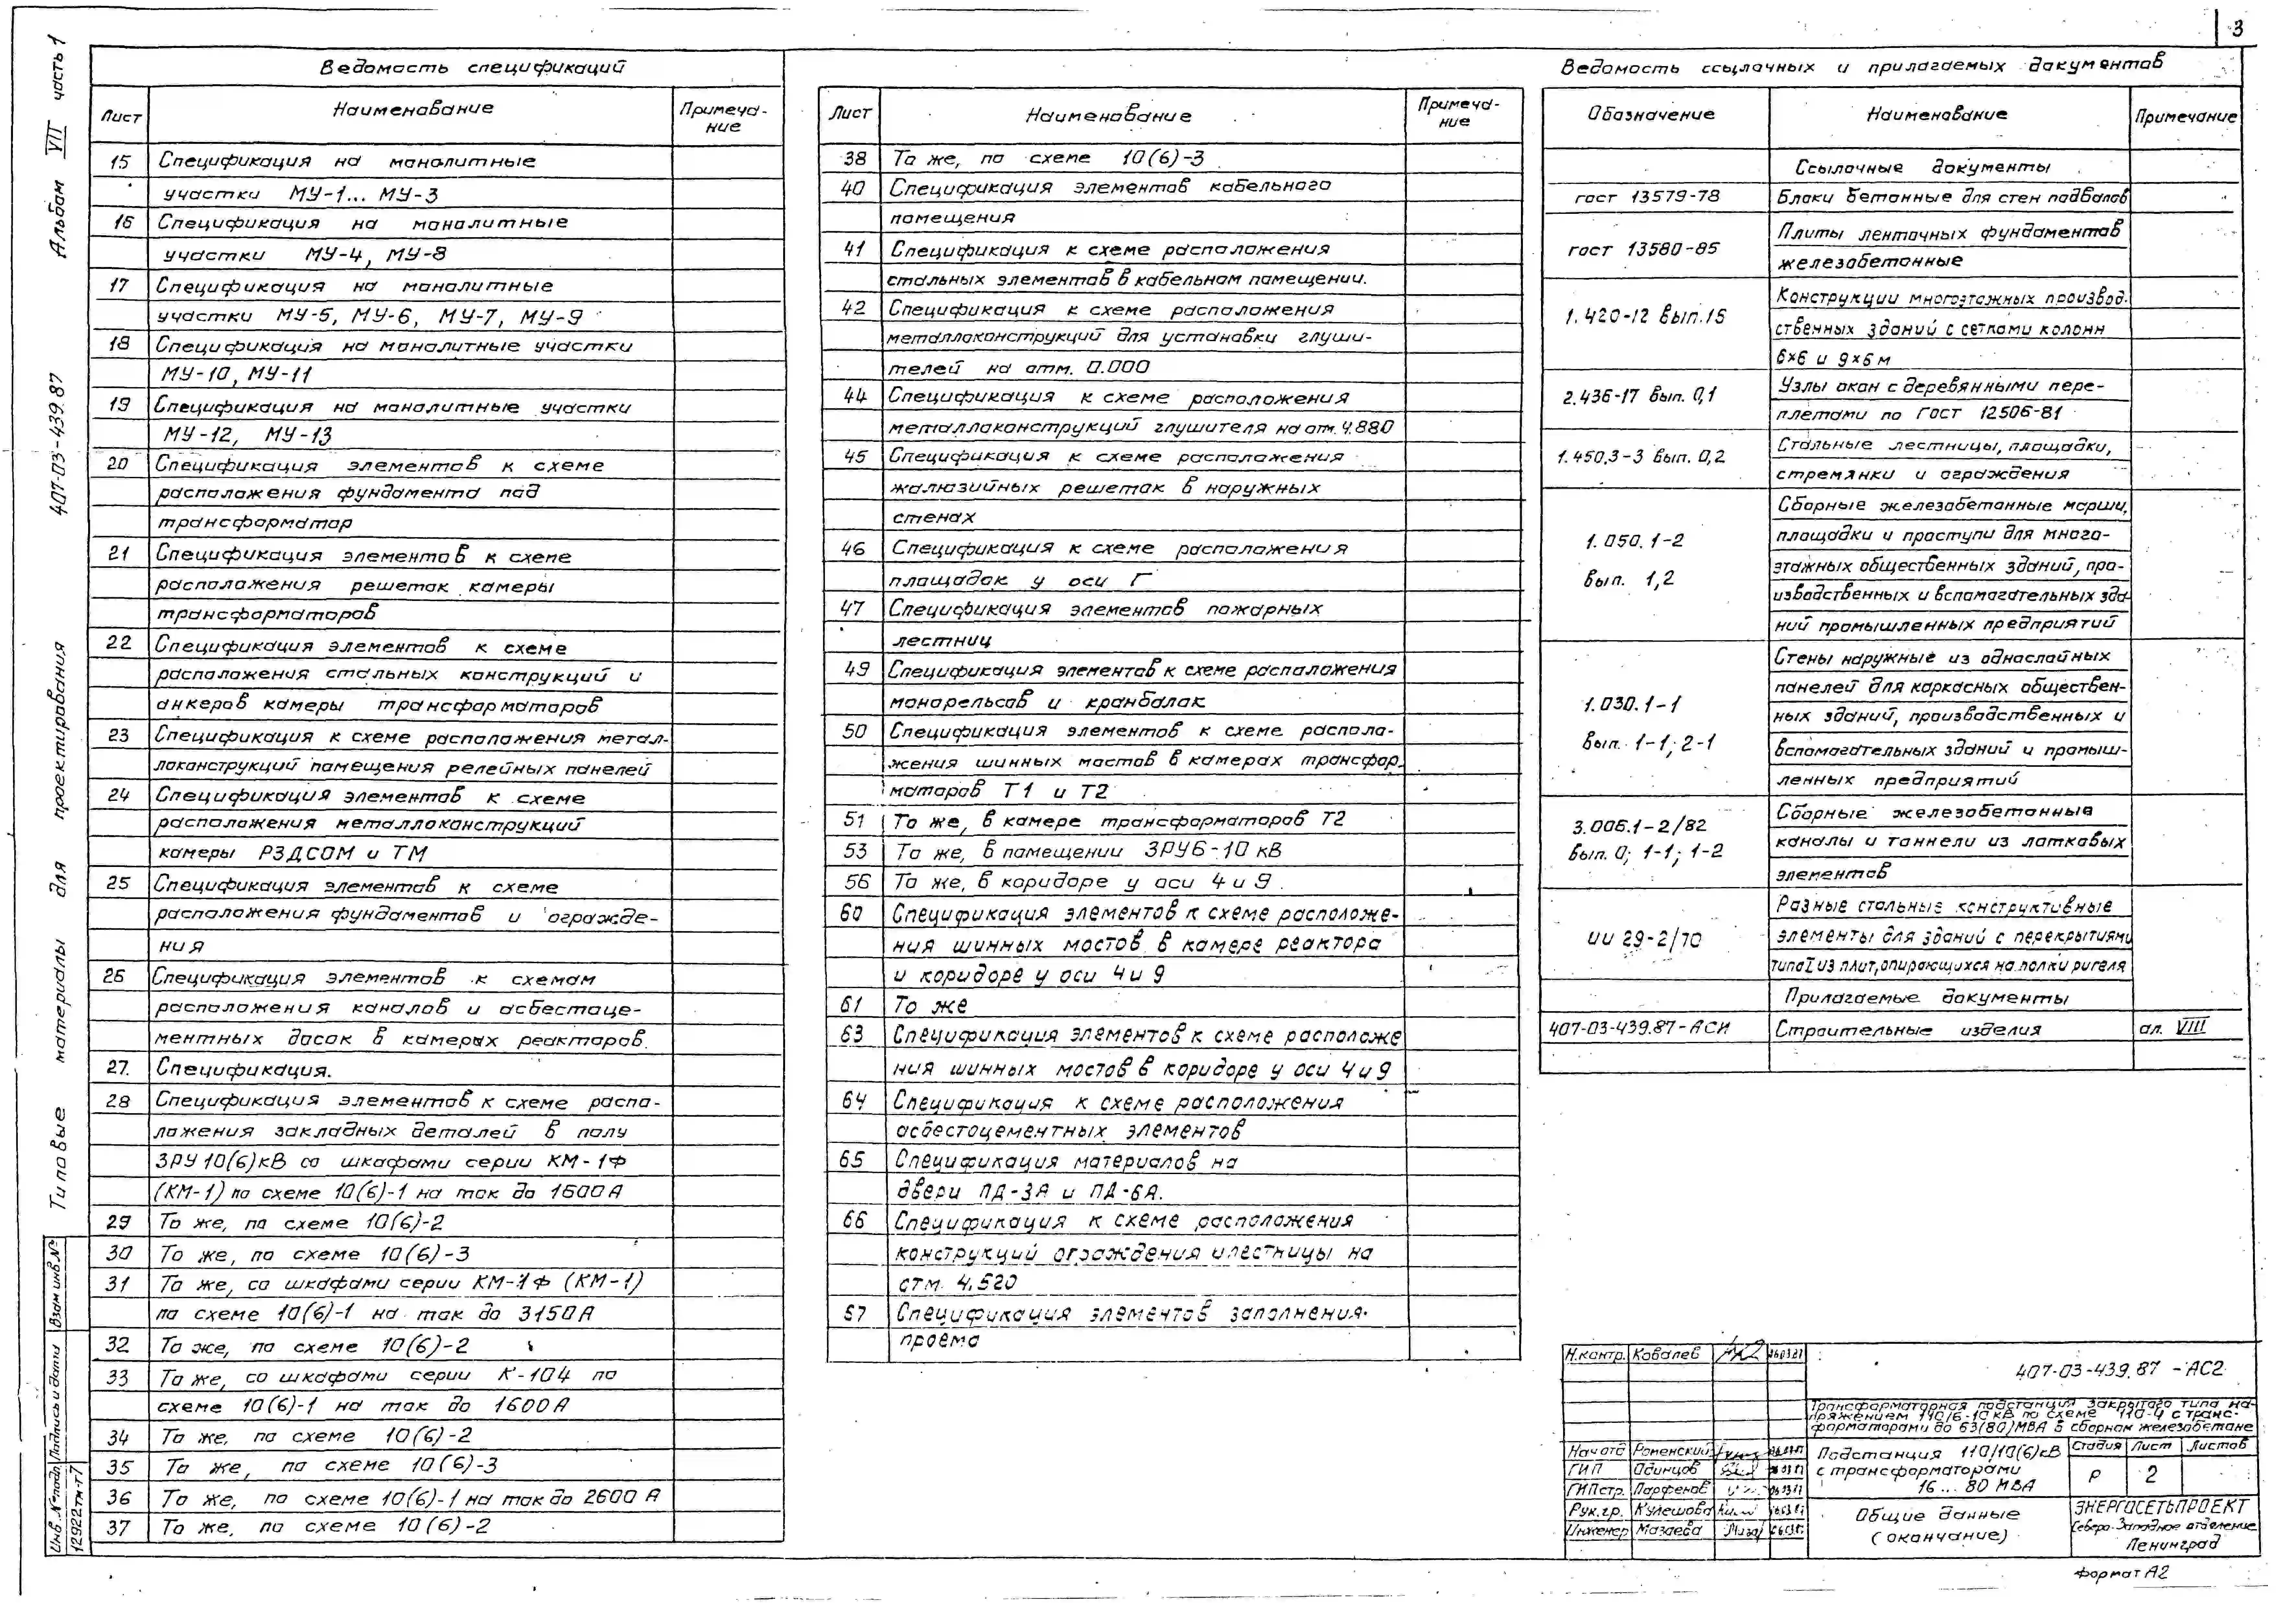 3
Альбом VII часть 1
407-03-439.87
Типовые материалы для проектирования
Ведомость спецификаций
Лист Наименование Примеча-
ние
15 Спецификация на монолитные
участки МУ-1... МУ-3
16 Спецификация на монолитные
участки МУ-4, МУ-8
17 Спецификация на монолитные
участки МУ-5, МУ-6, МУ-7, МУ-9
18 Спецификация на монолитные участки
МУ-10, МУ-11
19 Спецификация на монолитные участки
МУ-12, МУ-13
20 Спецификация элементов к схеме
расположения фундамента под
трансформатор
21 Спецификация элементов к схеме
расположения решеток камеры
трансформаторов
22 Спецификация элементов к схеме
расположения стальных конструкций и
анкеров камеры трансформаторов
23 Спецификация к схеме расположения метал-
локонструкций помещения релейных панелей
24 Спецификация элементов к схеме
расположения металлоконструкций
камеры РЗДСОМ и ТМ
25 Спецификация элементов к схеме
расположения фундаментов и огражде-
ния
26 Спецификация элементов к схемам
расположения каналов и асбестоце-
ментных досок в камерах реакторов.
27. Спецификация.
28 Спецификация элементов к схеме распо-
ложения закладных деталей в полу
ЗРУ 10(6)кВ со шкафами серии КМ-1Ф
(КМ-1) по схеме 10(6)-1 на ток до 1600А
29 То же, по схеме 10(6)-2
30 То же, по схеме 10(6)-3
31 То же, со шкафами серии КМ-1Ф (КМ-1)
по схеме 10(6)-1 на ток до 3150А
32 То же, по схеме 10(6)-2
33 То же, со шкафами серии К-104 по
схеме 10(6)-1 на ток до 1600А
34 То же, по схеме 10(6)-2
35 То же, по схеме 10(6)-3
36 То же, по схеме 10(6)-1 на ток до 2600 А
37 То же, по схеме 10(6)-2
Лист Наименование Примеча-
ние
38 То же, по схеме 10(6)-3
40 Спецификация элементов кабельного
помещения
41 Спецификация к схеме расположения
стальных элементов в кабельном помещении.
42 Спецификация к схеме расположения
металлоконструкций для установки глуши-
телей на отм. 0.000
44 Спецификация к схеме расположения
металлоконструкций глушителя на отм. 4.880
45 Спецификация к схеме расположения
жалюзийных решеток в наружных
стенах
46 Спецификация к схеме расположения
площадок у оси Г
47 Спецификация элементов пожарных
лестниц
49 Спецификация элементов к схеме расположения
монорельсов и кранбалок
50 Спецификация элементов к схеме располо-
жения шинных мостов в камерах трансфор-
маторов Т1 и Т2
51 То же, в камере трансформаторов Т2
53 То же, в помещении ЗРУ6-10 кВ
56 То же, в коридоре у оси 4 и 9.
60 Спецификация элементов к схеме расположе-
ния шинных мостов в камере реактора
и коридоре у оси 4 и 9
61 То же
63 Спецификация элементов к схеме расположе
ния шинных мостов в коридоре у оси 4 и 9
64 Спецификация к схеме расположения
асбестоцементных элементов
65 Спецификация материалов на
двери ПД-3А и ПД-6А.
66 Спецификация к схеме расположения
конструкций ограждения и лестницы на
отм. 4,520
67 Спецификация элементов заполнения
проема
Ведомость ссылочных и прилагаемых документов
Обозначение Наименование Примечание
Ссылочные документы
гост 13579-78 Блоки бетонные для стен подвалов
гост 13580-85 Плиты ленточных фундаментов
железобетонные
1.420-12 вып.15 Конструкции многоэтажных производ-
ственных зданий с сетками колонн
6×6 и 9×6 м
2.436-17 вып. 0,1 Узлы окон с деревянными пере-
плетами по Гост 12506-81
1.450.3-3 вып. 0,2 Стальные лестницы, площадки,
стремянки и ограждения
1.050.1-2 вып. 1,2 Сборные железобетонные марши,
площадки и проступи для много-
этажных общественных зданий, про-
изводственных и вспомогательных зда-
ний промышленных предприятий
1.030.1-1 вып. 1-1; 2-1 Стены наружные из однослойных
панелей для каркасных обществен-
ных зданий, производственных и
вспомогательных зданий и промыш-
ленных предприятий
3.006.1-2/82 вып. 0; 1-1; 1-2 Сборные железобетонные
каналы и тоннели из лотковых
элементов
ИИ 29-2/70 Разные стальные конструктивные
элементы для зданий с перекрытиями
типа I из плит, опирающихся на полки ригеля
Прилагаемые документы
407-03-439.87-АСИ Строительные изделия ал. VIII
Н.контр. Ковалев
407-03-439.87 - АС2
Трансформаторная подстанция закрытого типа на-
пряжением 110/6-10 кВ по схеме 110-4 с транс-
форматорами до 63(80)МВА в сборном железобетоне
Нач отд Роменский
ГИП Одинцов
ГИПстр. Парфенов
Рук.гр. Кулешова
Инженер Мазаева
Подстанция 110/10(6)кВ
с трансформаторами
16 ... 80 МВА
Стадия Лист Листов
Р 2
Общие данные
(окончание)
ЭНЕРГОСЕТЬПРОЕКТ
Северо-Западное отделение
Ленинград
Формат А2
Взам инв.№
Подпись и дата
Инв.№ подл
12922тм-т7